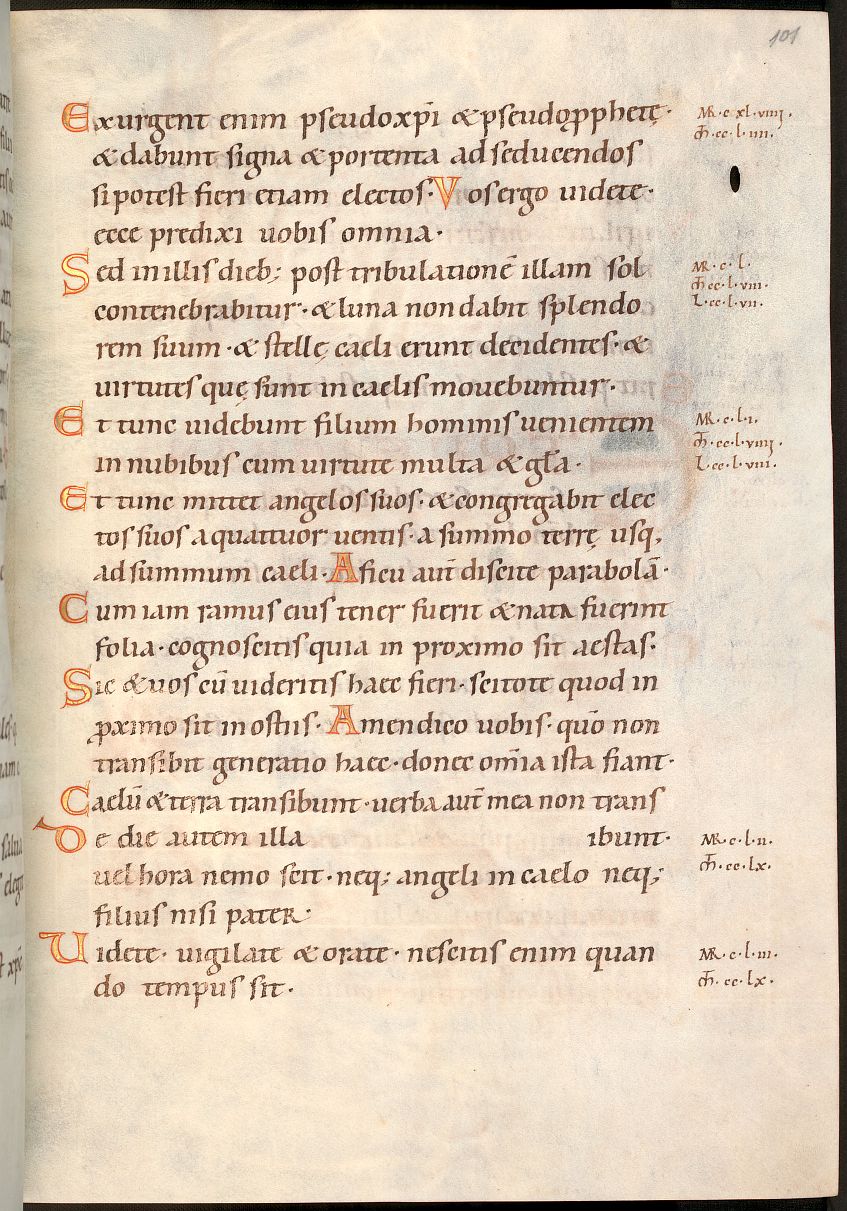 101
Exurgent enim pseudoxp̄i &pseudoꝓphetę·
&dabunt signa &portenta adseducendos
sipotest fieri etiam electos· Vosergo uidete·
ecce predixi uobis omnia·
Sed inillis dieb; post tribulationē illam sol
contenebrabitur· &luna nondabit splendo
rem suum· & stellę caeli erunt decidentes· &
uirtutes quę sunt incaelis mouebuntur·
Et tunc uidebunt filium hominis uenientem
innubibus cum uirtute multa & gl̄a·
Et tunc mittet angelos suos· &congregabit elec
tos suos aquattuor uentis· a summo terrę usq;
adsummum caeli· Aficu aut̄ discite parabolā·
Cum iam ramus eius tener fuerit &nata fuerint
folia· cognoscitis quia in proximo sit aestas·
Sic &uos cū uideritis haec fieri· scitote quod in
ꝓximo sit inostiis· Amendico uobis· quō non
transibit generatio haec· donec om̄ia ista fiant·
Caelū &terra transibunt· uerba aut̄ mea non trans
De die autem illa ibunt·
uel hora nemo scit· neq; angeli incaelo neq;
filius nisi pater·
Uidete· uigilate &orate· nescitis enim quan
do tempus sit·
MR· c· xl· viiii·
M̄· cc· l· iiii·
MR· c· l·
M̄· cc· l· viii·
L· cc· l· vii·
MR· c· l· i·
M̄· cc· l· viiii·
L· cc· l· viii·
MR· c· l· ii·
M̄· cc· lx·
MR· c· l· iii·
M̄· cc· lx·